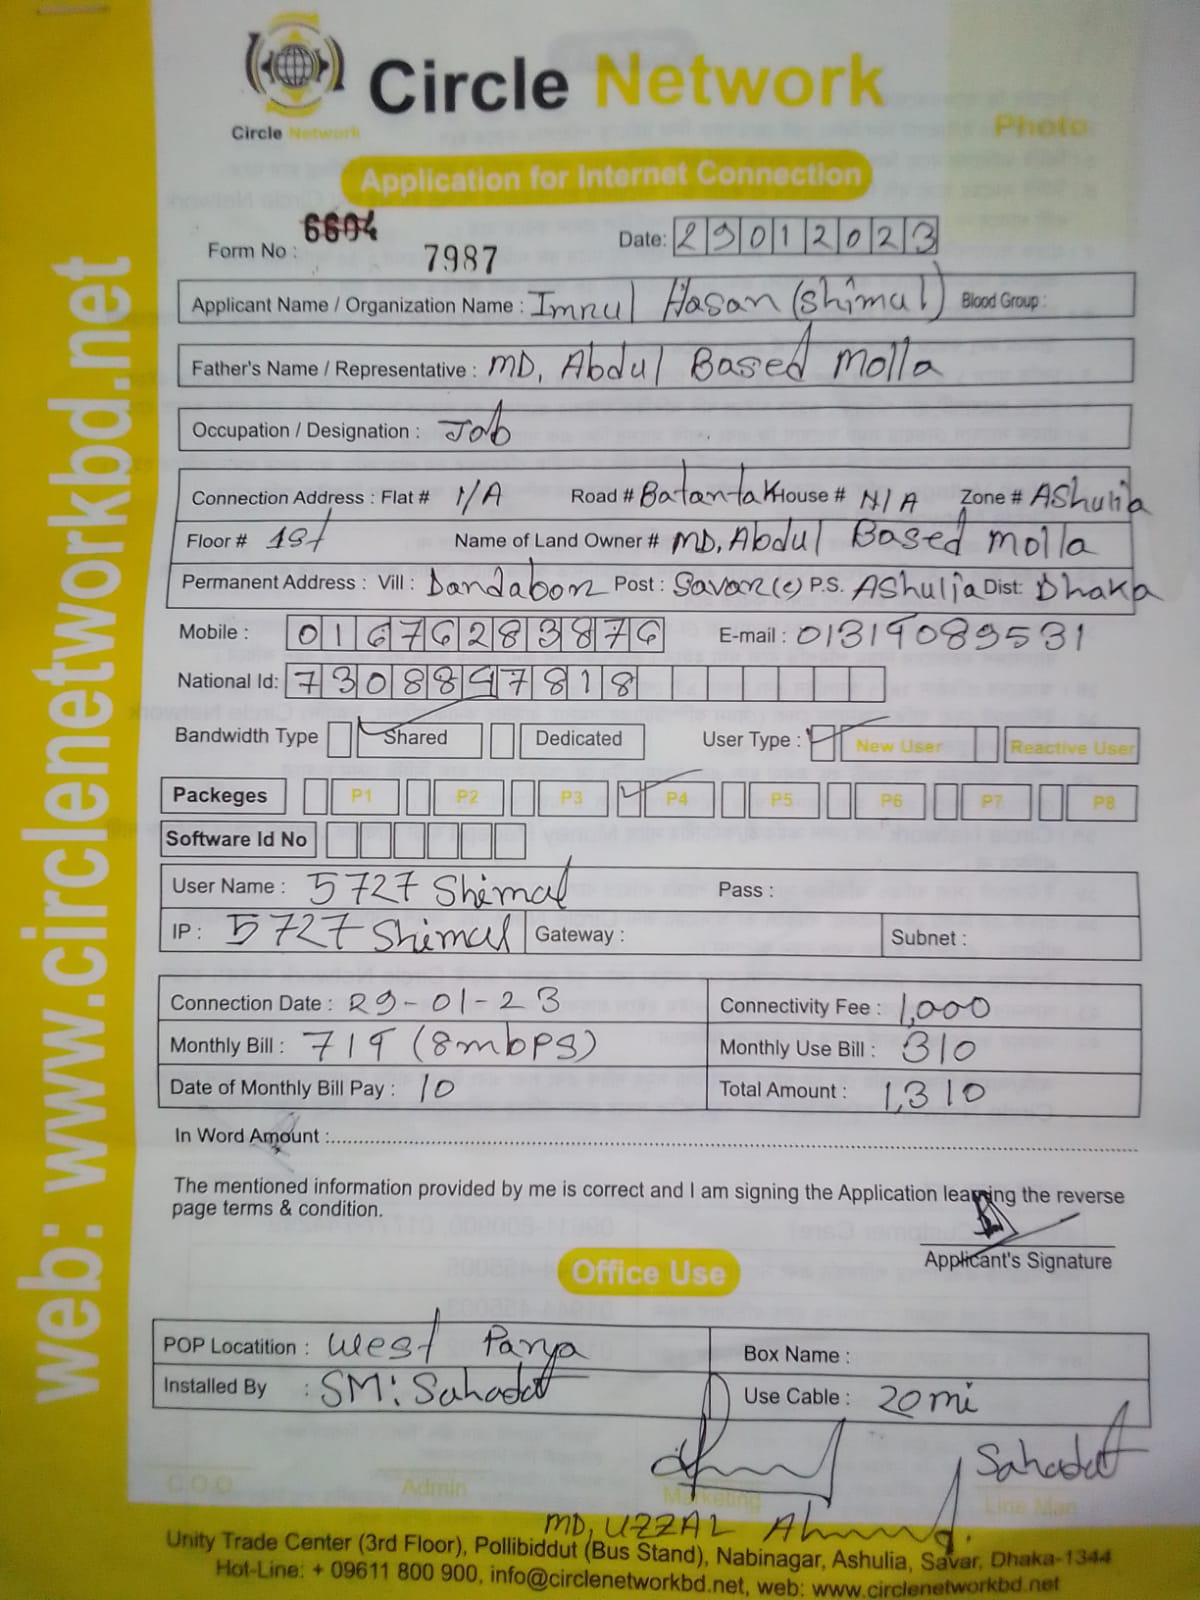 Circle Network
Circle Network
Photo
Application for Internet Connection
Form No : 6604 7987 Date: 29012023
Applicant Name / Organization Name : Imrul Hasan (shimul) Blood Group :
Father's Name / Representative : MD, Abdul Based Molla
Occupation / Designation : Job
Connection Address : Flat # N/A Road # Batantak House # N/A Zone # AShulia
Floor # 1st Name of Land Owner # MD, Abdul Based molla
Permanent Address : Vill : Dandabor Post : Savar(c) P.S. AShulia Dist: Dhaka
Mobile : 01676283876 E-mail : 01319089531
National Id: 7308897818
Bandwidth Type Shared Dedicated User Type : New User Reactive User
Packeges P1 P2 P3 P4 P5 P6 P7 P8
Software Id No
User Name : 5727 Shimul Pass :
IP : 5727 Shimul Gateway : Subnet :
Connection Date : 29-01-23 Connectivity Fee : 1,000
Monthly Bill : 719 (8mbps) Monthly Use Bill : 310
Date of Monthly Bill Pay : 10 Total Amount : 1,310
In Word Amount :
The mentioned information provided by me is correct and I am signing the Application learning the reverse
page terms & condition.
Applicant's Signature
Office Use
POP Locatition : West Parya Box Name :
Installed By : SM: Sahadat Use Cable : 20mi
Sahadat
C.O.O Admin Marketing Line Man
MD, UZZAL Ahmed.
Unity Trade Center (3rd Floor), Pollibiddut (Bus Stand), Nabinagar, Ashulia, Savar, Dhaka-1344
Hot-Line: + 09611 800 900, info@circlenetworkbd.net, web: www.circlenetworkbd.net
web: www.circlenetworkbd.net